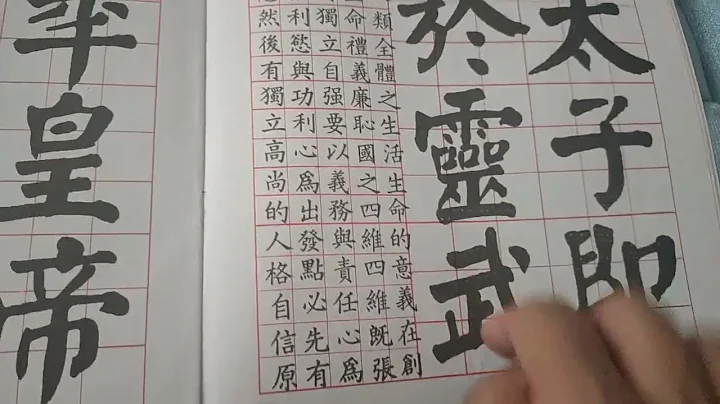 太子即
於靈武
類全體之生活生命的意義在創
命禮義廉恥國之四維四維既張
獨立自强要以義務與責任心爲
利慾與功利心爲出發點必先有
然後有獨立高尚的人格自信原
年皇帝